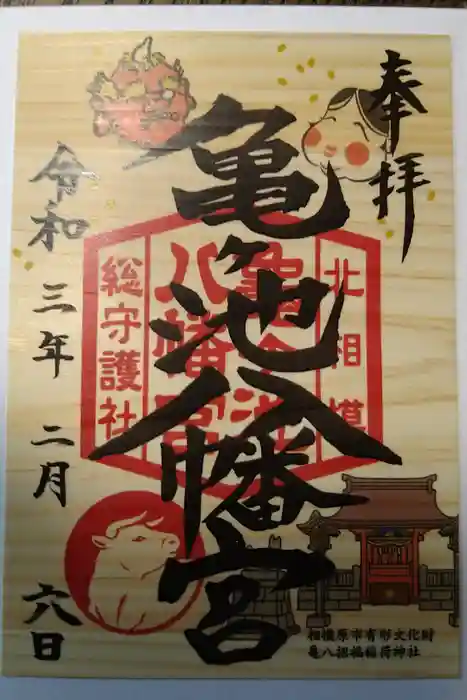 奉拝
北相模
亀ヶ池
八幡宮
総守護社
亀ヶ池八幡宮
令和三年二月六日
相模原市有形文化財
亀八招福稲荷神社